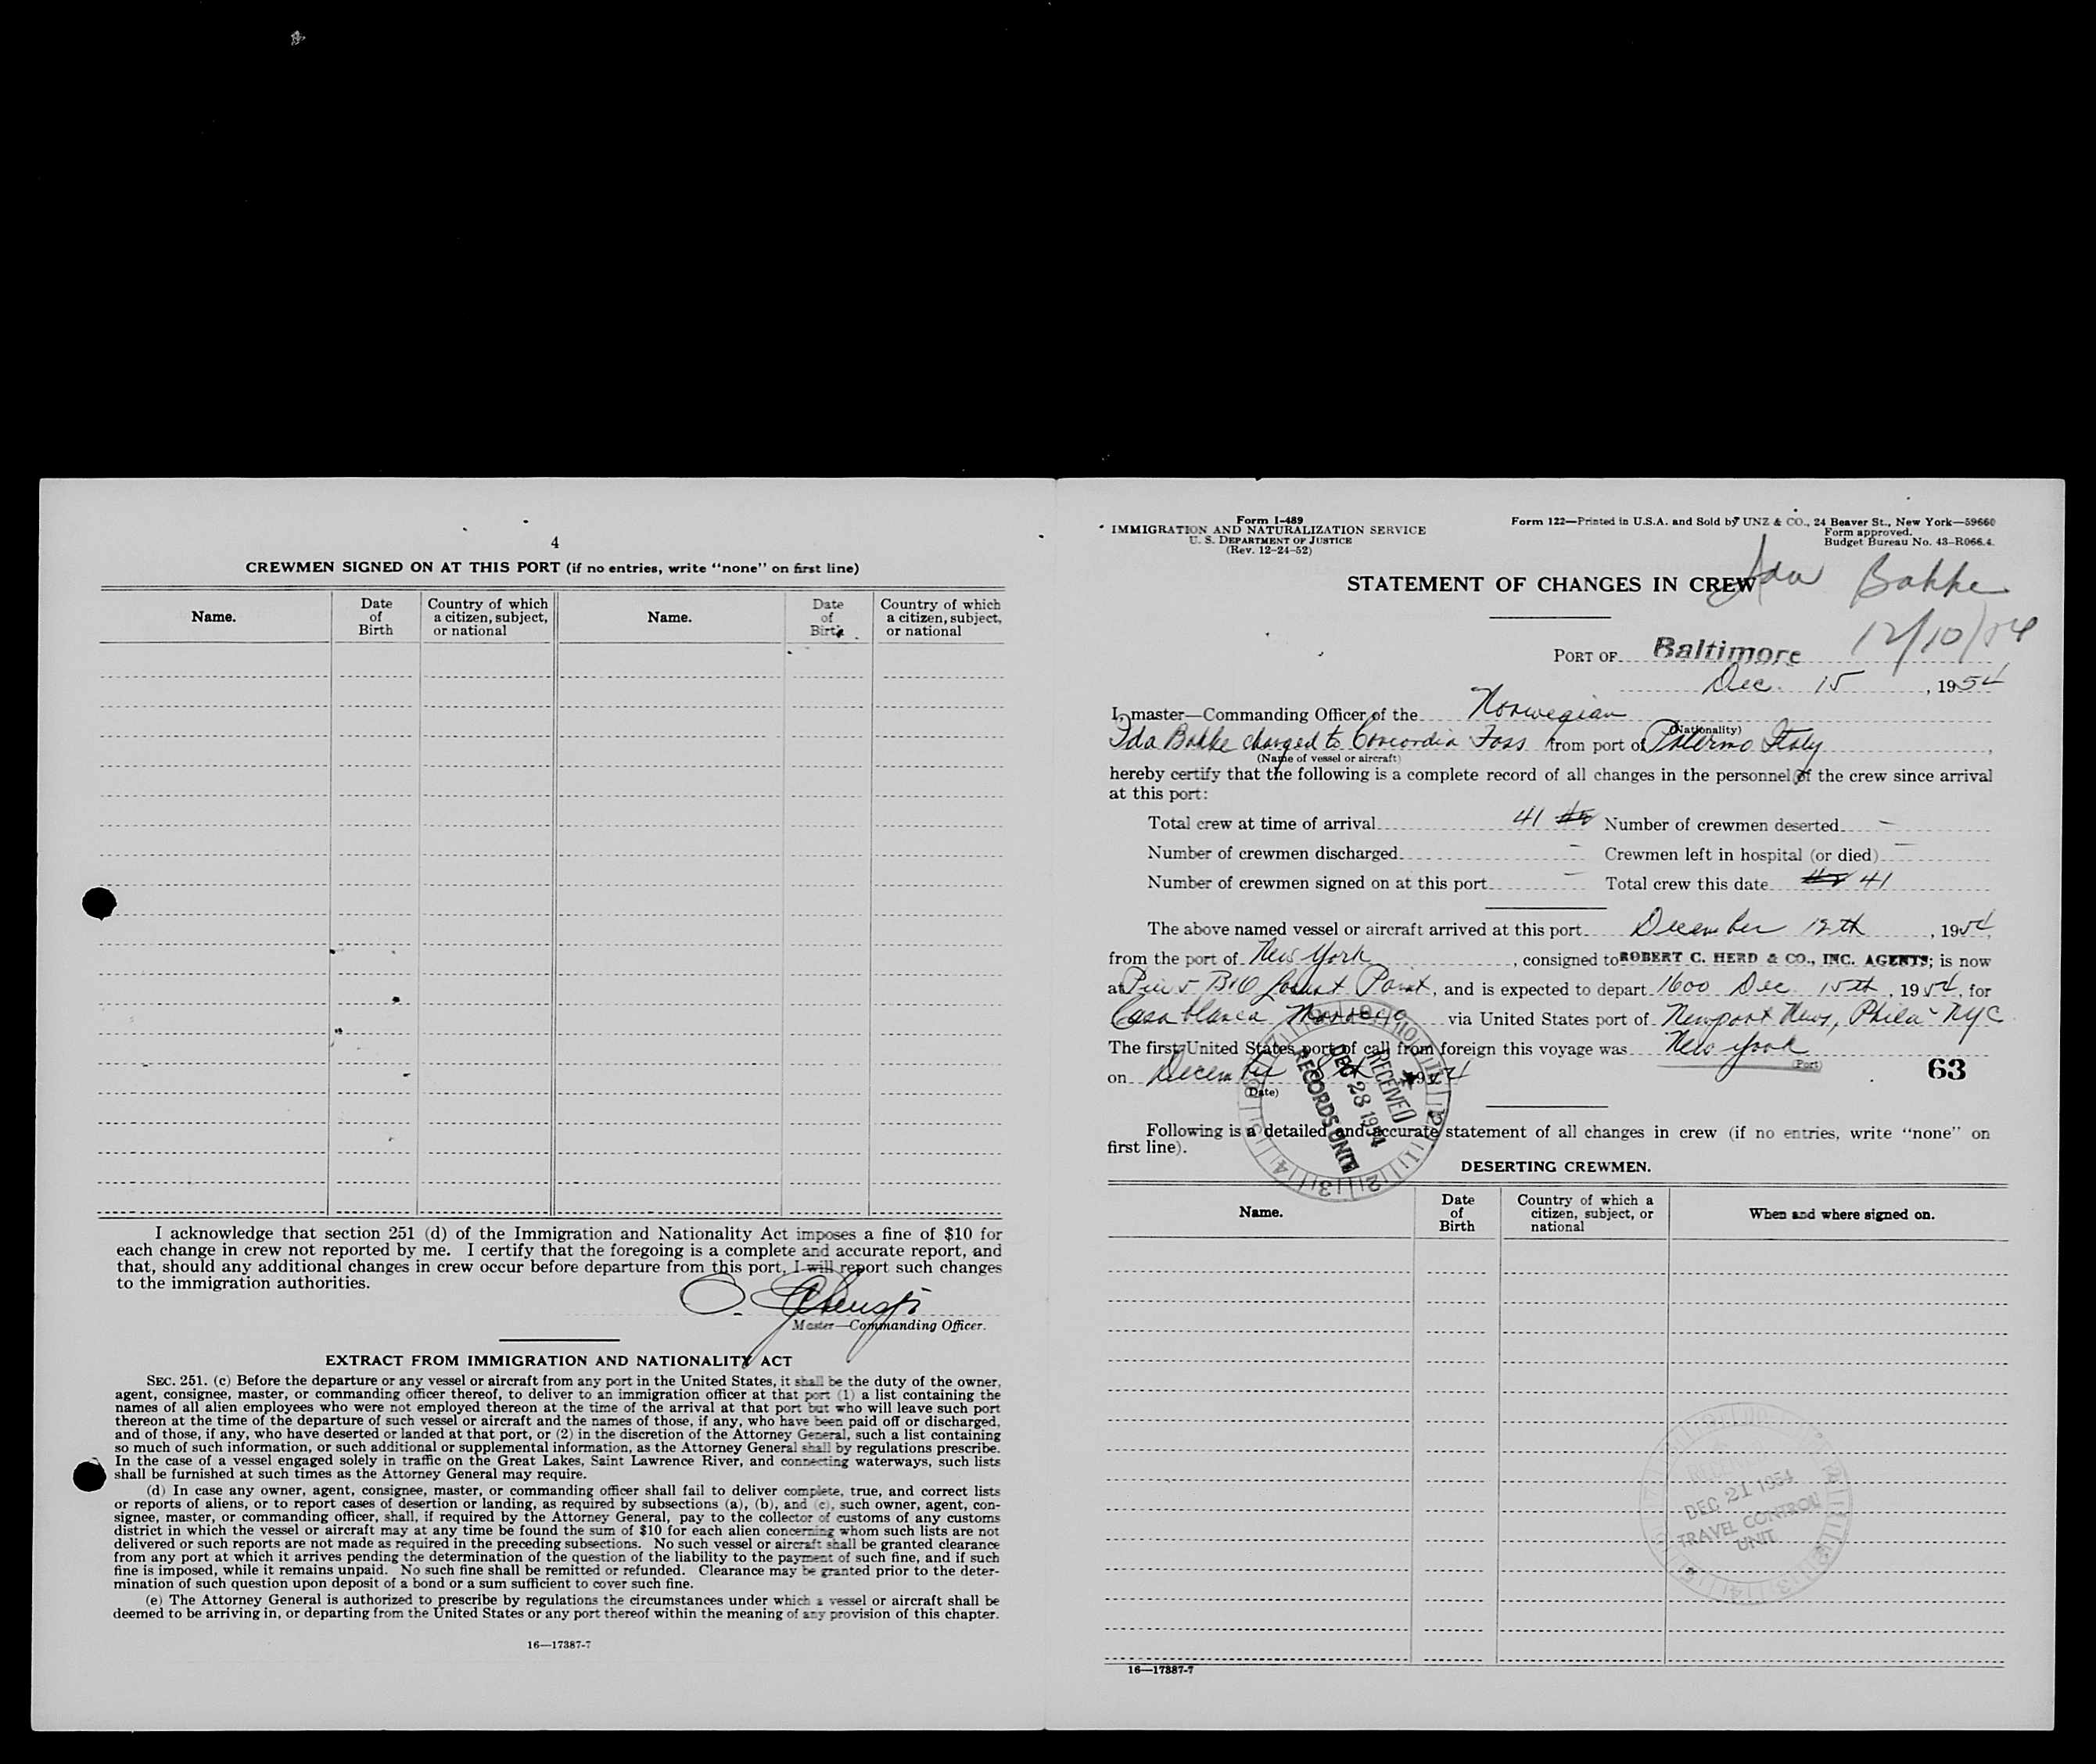 4
CREWMEN SIGNED ON AT THIS PORT (if no entries, write "none" on first line)
Name. Date of Birth Country of which a citizen, subject, or national Name. Date of Birth Country of which a citizen, subject, or national
I acknowledge that section 251 (d) of the Immigration and Nationality Act imposes a fine of $10 for
each change in crew not reported by me. I certify that the foregoing is a complete and accurate report, and
that, should any additional changes in crew occur before departure from this port, I will report such changes
to the immigration authorities.
Master—Commanding Officer.
EXTRACT FROM IMMIGRATION AND NATIONALITY ACT
SEC. 251. (c) Before the departure or any vessel or aircraft from any port in the United States, it shall be the duty of the owner,
agent, consignee, master, or commanding officer thereof, to deliver to an immigration officer at that port (1) a list containing the
names of all alien employees who were not employed thereon at the time of the arrival at that port but who will leave such port
thereon at the time of the departure of such vessel or aircraft and the names of those, if any, who have been paid off or discharged,
and of those, if any, who have deserted or landed at that port, or (2) in the discretion of the Attorney General, such a list containing
so much of such information, or such additional or supplemental information, as the Attorney General shall by regulations prescribe.
In the case of a vessel engaged solely in traffic on the Great Lakes, Saint Lawrence River, and connecting waterways, such lists
shall be furnished at such times as the Attorney General may require.
(d) In case any owner, agent, consignee, master, or commanding officer shall fail to deliver complete, true, and correct lists
or reports of aliens, or to report cases of desertion or landing, as required by subsections (a), (b), and (c), such owner, agent, con-
signee, master, or commanding officer, shall, if required by the Attorney General, pay to the collector of customs of any customs
district in which the vessel or aircraft may at any time be found the sum of $10 for each alien concerning whom such lists are not
delivered or such reports are not made as required in the preceding subsections. No such vessel or aircraft shall be granted clearance
from any port at which it arrives pending the determination of the question of the liability to the payment of such fine, and if such
fine is imposed, while it remains unpaid. No such fine shall be remitted or refunded. Clearance may be granted prior to the deter-
mination of such question upon deposit of a bond or a sum sufficient to cover such fine.
(e) The Attorney General is authorized to prescribe by regulations the circumstances under which a vessel or aircraft shall be
deemed to be arriving in, or departing from the United States or any port thereof within the meaning of any provision of this chapter.
16—17387-7
Form I-489
IMMIGRATION AND NATURALIZATION SERVICE
U. S. DEPARTMENT OF JUSTICE
(Rev. 12-24-52)
Form 122—Printed in U.S.A. and Sold by UNZ & CO., 24 Beaver St., New York—59660
Form approved.
Budget Bureau No. 43-R066.4.
STATEMENT OF CHANGES IN CREW Ida Bakke
12/10/54
PORT OF Baltimore
Dec. 15, 1954
I, master—Commanding Officer of the Norwegian
(Nationality)
Ida Bakke charged to Concordia Foss from port of Palermo Italy,
(Name of vessel or aircraft)
hereby certify that the following is a complete record of all changes in the personnel of the crew since arrival
at this port:
Total crew at time of arrival 41 Number of crewmen deserted –
Number of crewmen discharged – Crewmen left in hospital (or died) –
Number of crewmen signed on at this port – Total crew this date 41
The above named vessel or aircraft arrived at this port December 12th, 1954,
from the port of New York, consigned to ROBERT C. HERD & CO., INC. AGENTS; is now
at Pier 5 B&O Locust Point, and is expected to depart 1600 Dec 15th, 1954, for
Casablanca Morocco via United States port of Newport News, Phila - NYC
The first United States port of call from foreign this voyage was New York
(Port)
on December 8th 1954
(Date)
63
RECEIVED
DEC 28 1954
RECORDS UNIT
Following is a detailed and accurate statement of all changes in crew (if no entries, write "none" on
first line).
DESERTING CREWMEN.
Name. Date of Birth Country of which a citizen, subject, or national When and where signed on.
RECEIVED
DEC 21 1954
TRAVEL CONTROL
UNIT
16—17387-7